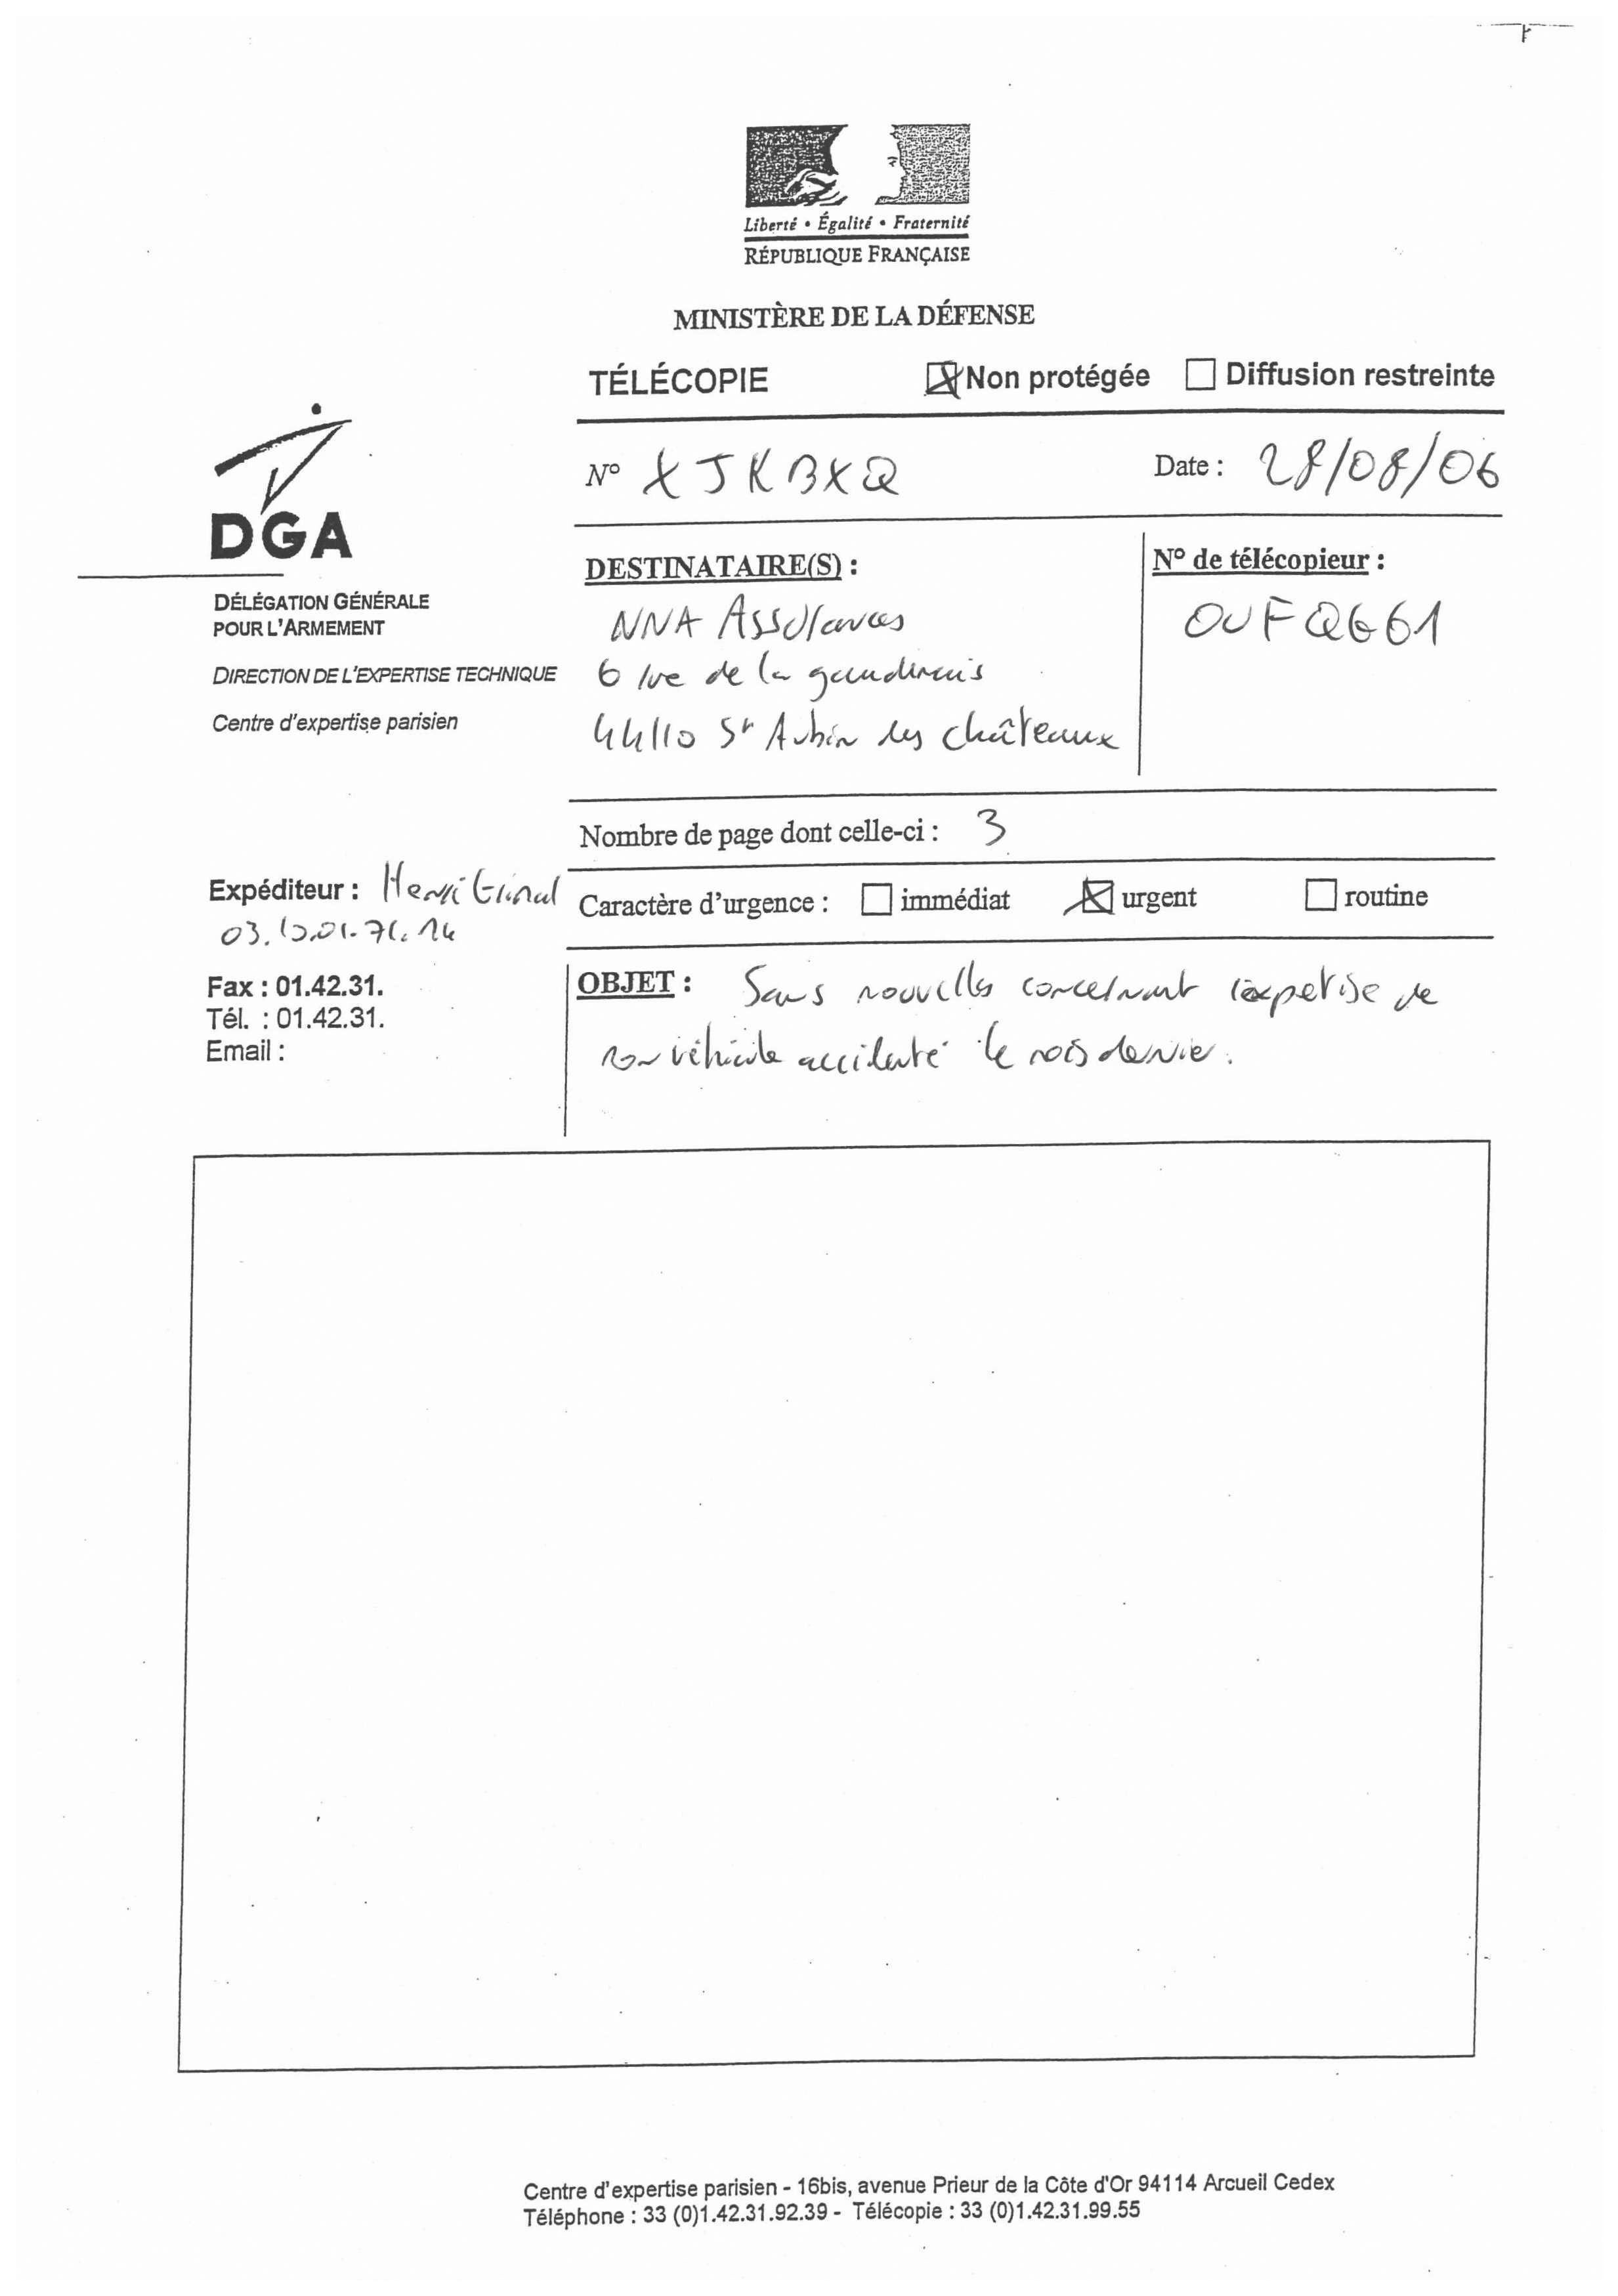 Liberté • Égalité • Fraternité
RÉPUBLIQUE FRANÇAISE
MINISTÈRE DE LA DÉFENSE
TÉLÉCOPIE Non protégée Diffusion restreinte
N° XJKBXQ Date : 28/08/06
DGA
DÉLÉGATION GÉNÉRALE
POUR L'ARMEMENT
DIRECTION DE L'EXPERTISE TECHNIQUE
Centre d'expertise parisien
DESTINATAIRE(S) :
NNA Assurances
6 rue de la
44110 St Aubin des châteaux
N° de télécopieur :
OUFQG61
Nombre de page dont celle-ci : 3
Expéditeur : Henri
Caractère d'urgence : immédiat urgent routine
Fax : 01.42.31.
Tél. : 01.42.31.
Email :
OBJET : Sans nouvelles concernant l'expertise de
mon véhicule accidenté le mois dernier.
Centre d'expertise parisien - 16bis, avenue Prieur de la Côte d'Or 94114 Arcueil Cedex
Téléphone : 33 (0)1.42.31.92.39 - Télécopie : 33 (0)1.42.31.99.55